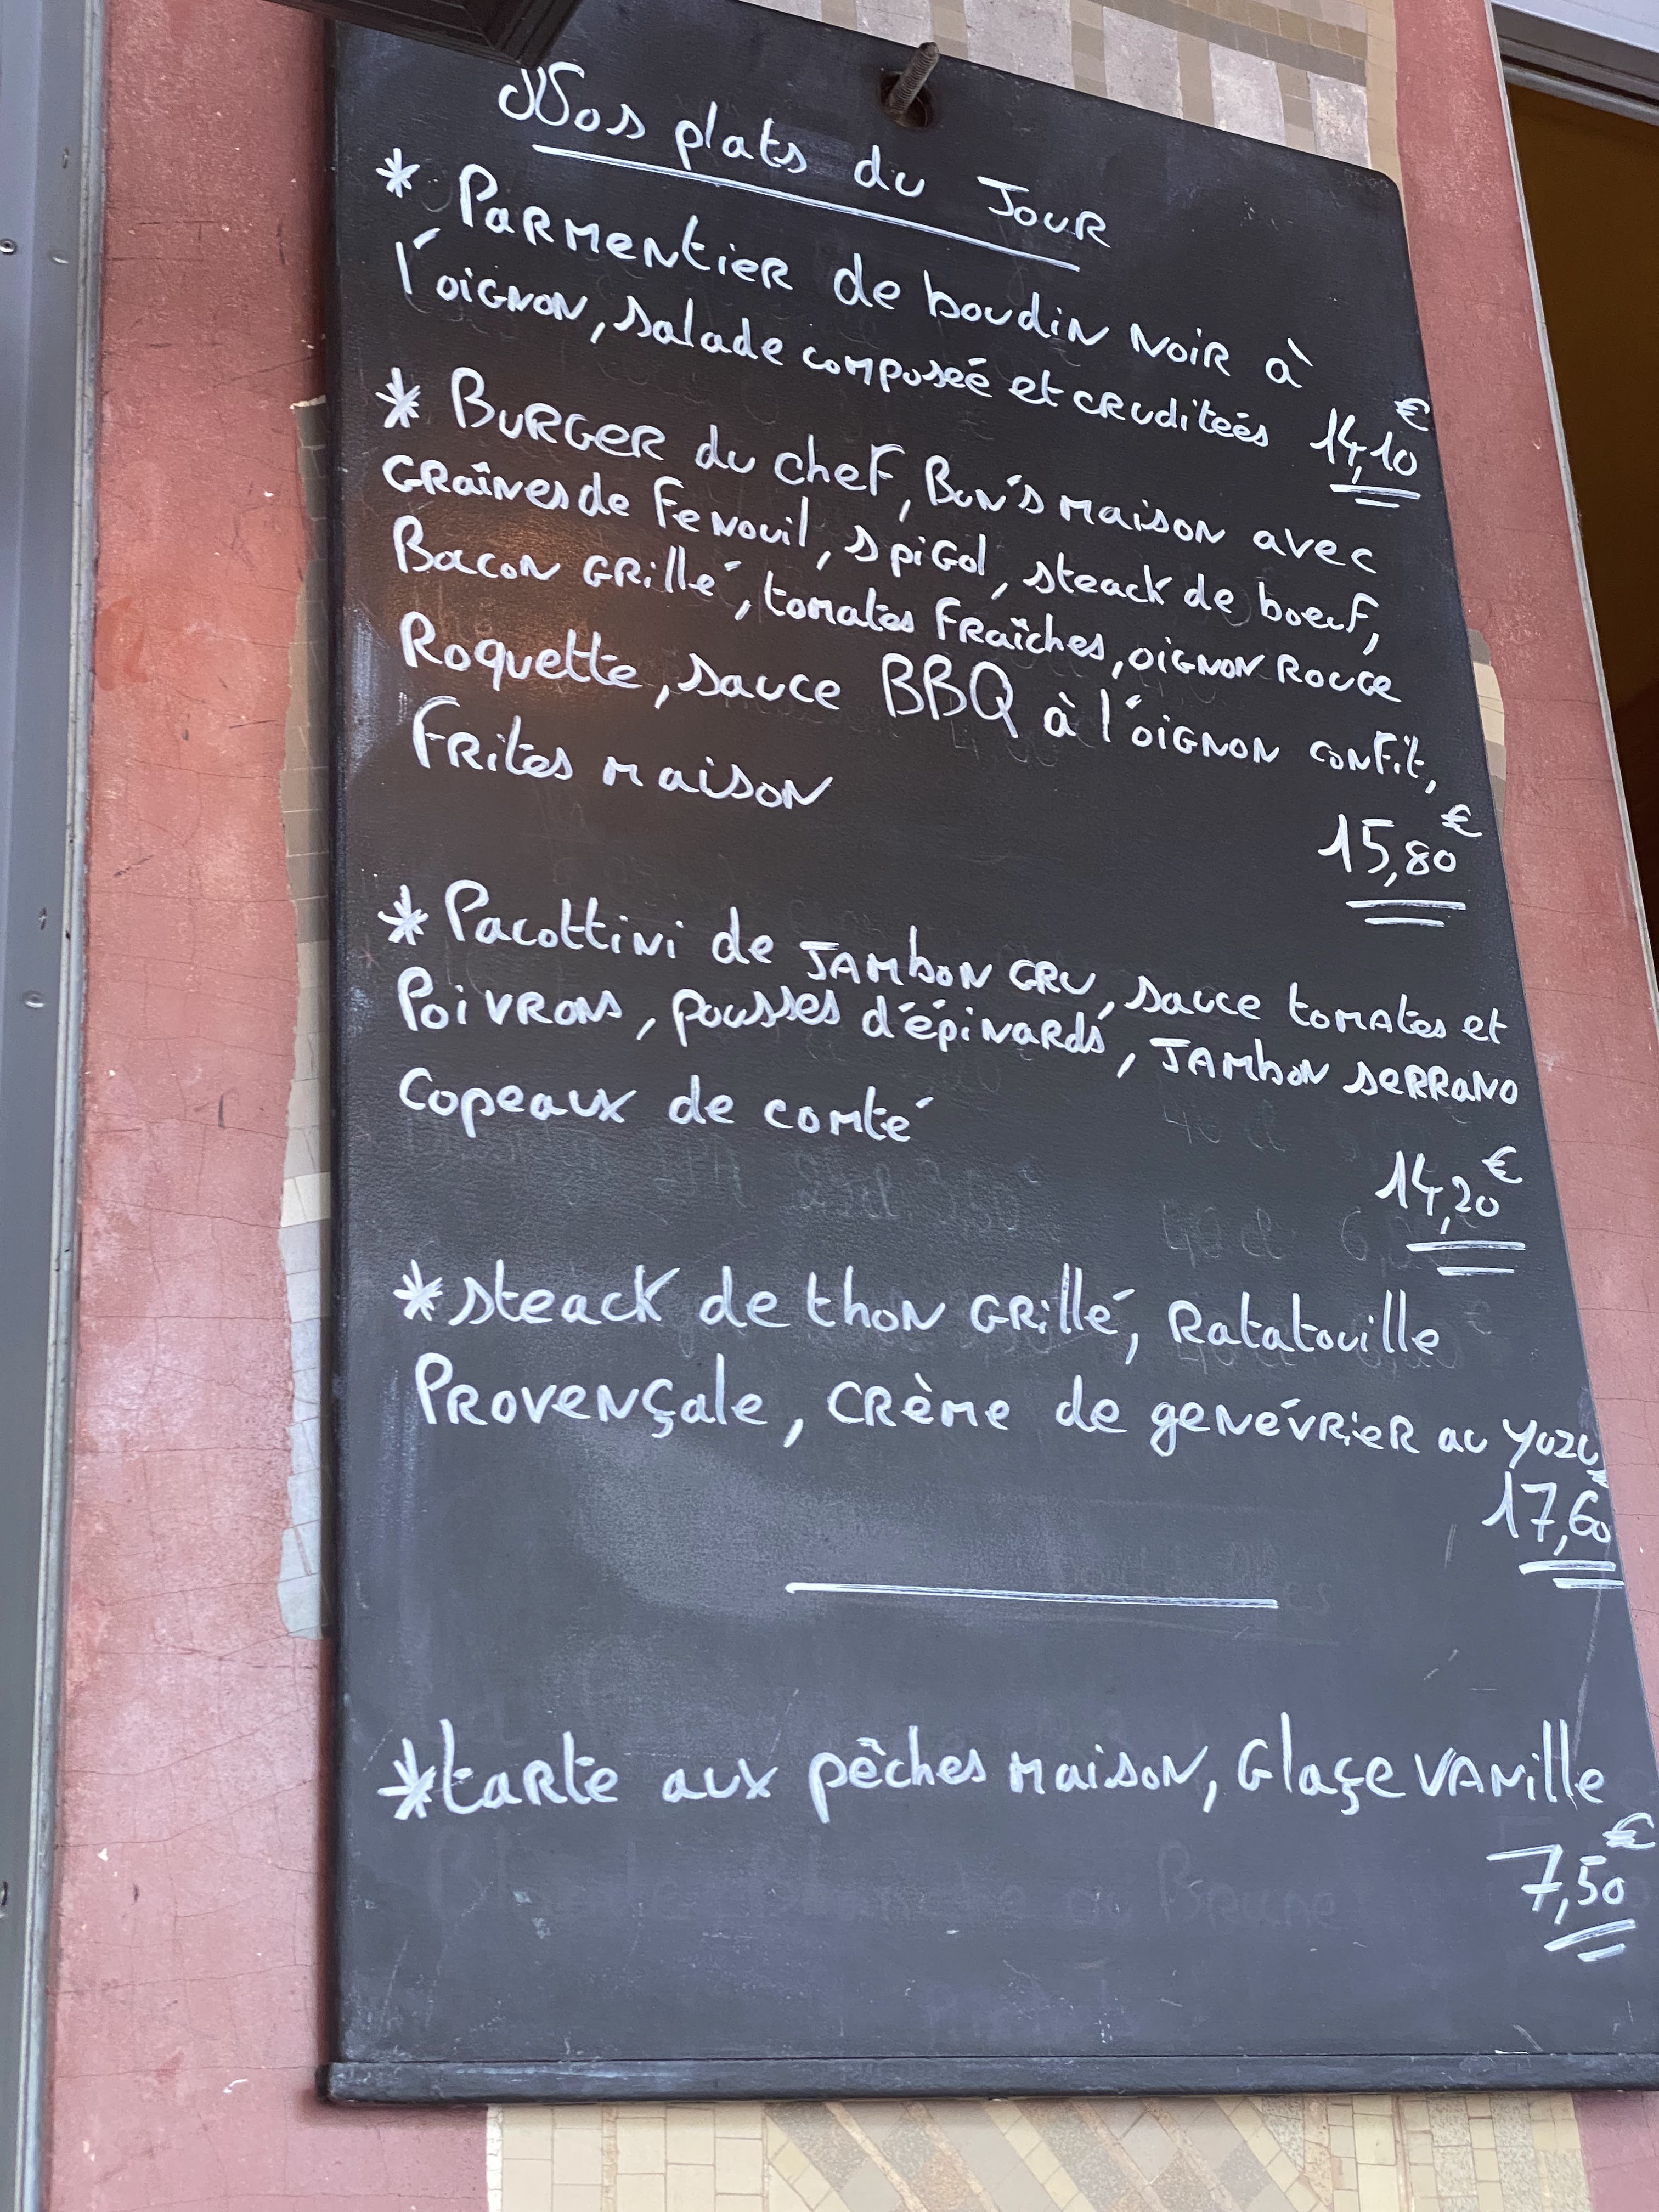 Nos plats du Jour
* Parmentier de boudin noir à
l'oignon, salade composeé et cruditeés 14,10€
* Burger du chef, Bun's maison avec
Graînes de Fenouil, spiGol, steack de boeuf,
Bacon Grillé, tomates Fraîches, oignon Rouge
Roquette, sauce BBQ à l'oignon confit,
Frites maison
15,80€
* Pacottini de Jambon CRU, sauce tomates et
Poivrons, pousses d'épinards, Jambon serrano
Copeaux de comté
14,20€
* steack de thon Grillé, Ratatouille
Provençale, crème de genévrier au yuzu
17,60
* tarte aux pêches maison, Glaçe vanille
7,50€